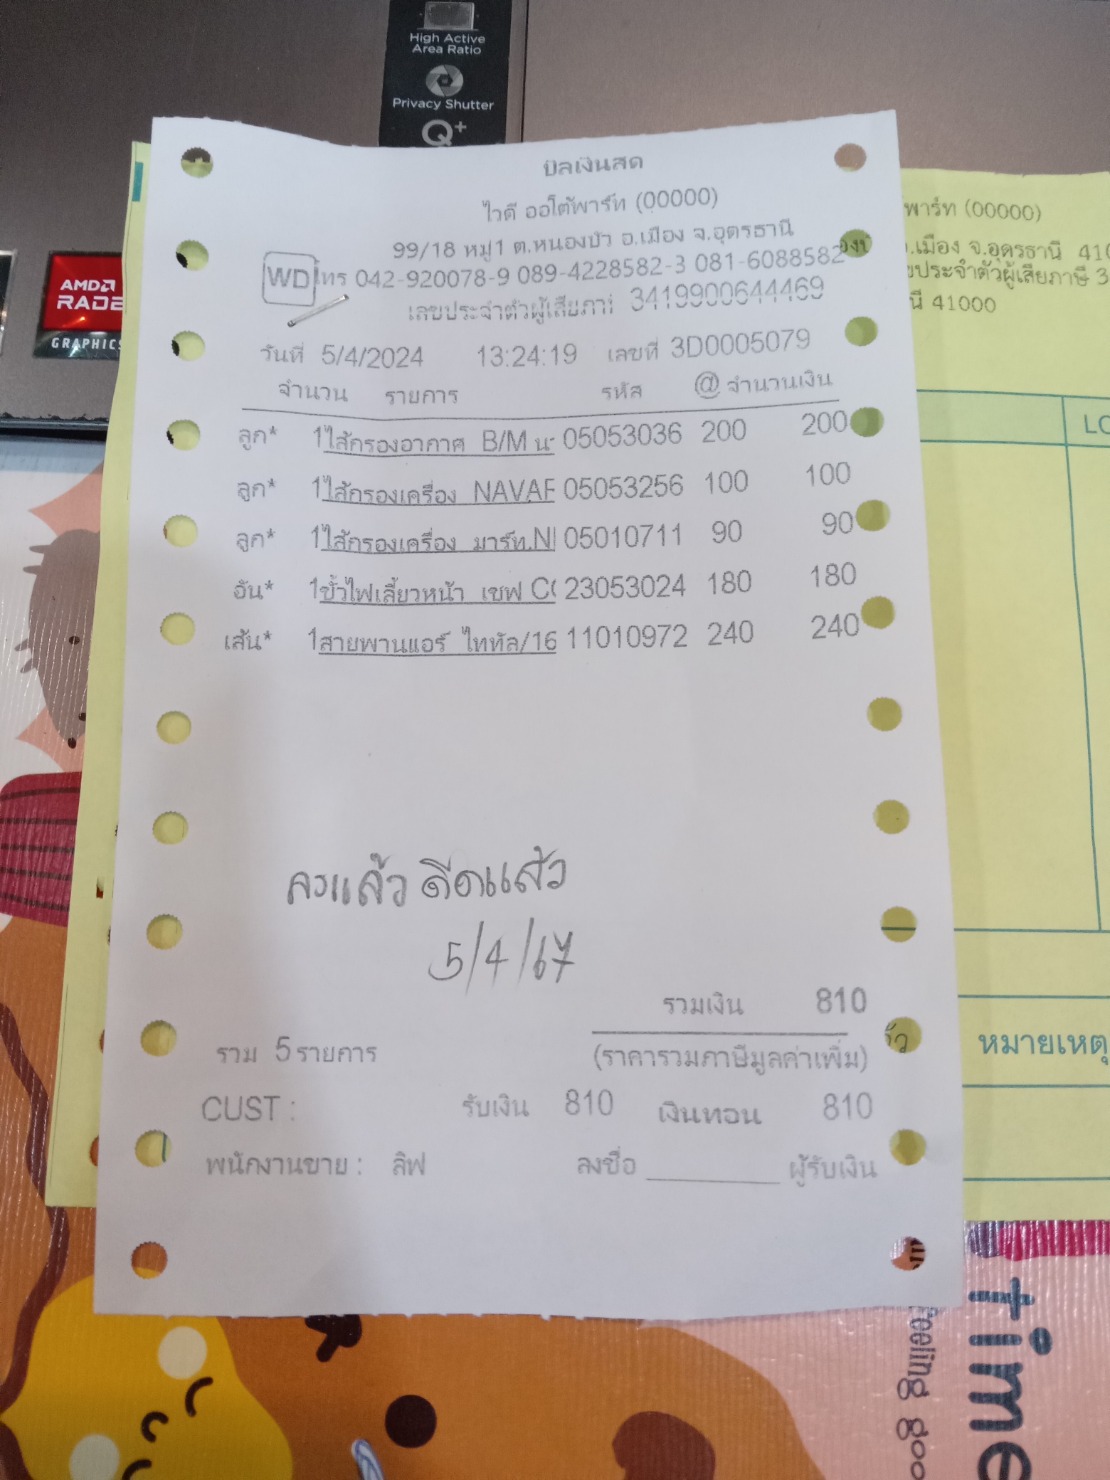 High Active
Area Ratio
Privacy Shutter
Q+
AMD
RADE
GRAPHICS
บิลเงินสด
ไวดี ออโต้พาร์ท (00000)
99/18 หมู่1 ต.หนองบัว อ.เมือง จ.อุดรธานี
WD โทร 042-920078-9 089-4228582-3 081-6088582
เลขประจำตัวผู้เสียภาษี 3419900644469
วันที่ 5/4/2024 13:24:19 เลขที่ 3D0005079
จำนวน รายการ รหัส @ จำนวนเงิน
ลูก* 1 ไส้กรองอากาศ B/M 05053036 200 200
ลูก* 1 ไส้กรองเครื่อง NAVAR 05053256 100 100
ลูก* 1 ไส้กรองเครื่อง มาร์ท.NI 05010711 90 90
อัน* 1 ขั้วไฟเลี้ยวหน้า เชฟ CO 23053024 180 180
เส้น* 1 สายพานแอร์ ไททัล/16 11010972 240 240
ลงแล้ว ดีดแล้ว
5/4/67
รวมเงิน 810
รวม 5 รายการ (ราคารวมภาษีมูลค่าเพิ่ม)
CUST : รับเงิน 810 เงินทอน 810
พนักงานขาย : ลิฟ ลงชื่อ ผู้รับเงิน
พาร์ท (00000)
.เมือง จ.อุดรธานี 410
ประจำตัวผู้เสียภาษี 3
นี 41000
LO
หมายเหตุ
time
feeling goo